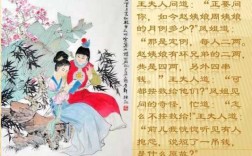 王夫人问道："正要问
你，如今赵姨娘周姨娘
的月例多少？"凤姐道：
"那是定例，每人二两。
赵姨娘有环兄弟的二两，
共是四两，另外四串
钱。"王夫人道："可
都按数给他们？"凤姐见
问的奇怪，忙道："怎
么不按数给！"王夫人道：
"前儿我恍惚听见有人
抱怨，说短了一吊钱，
是什么原故？"